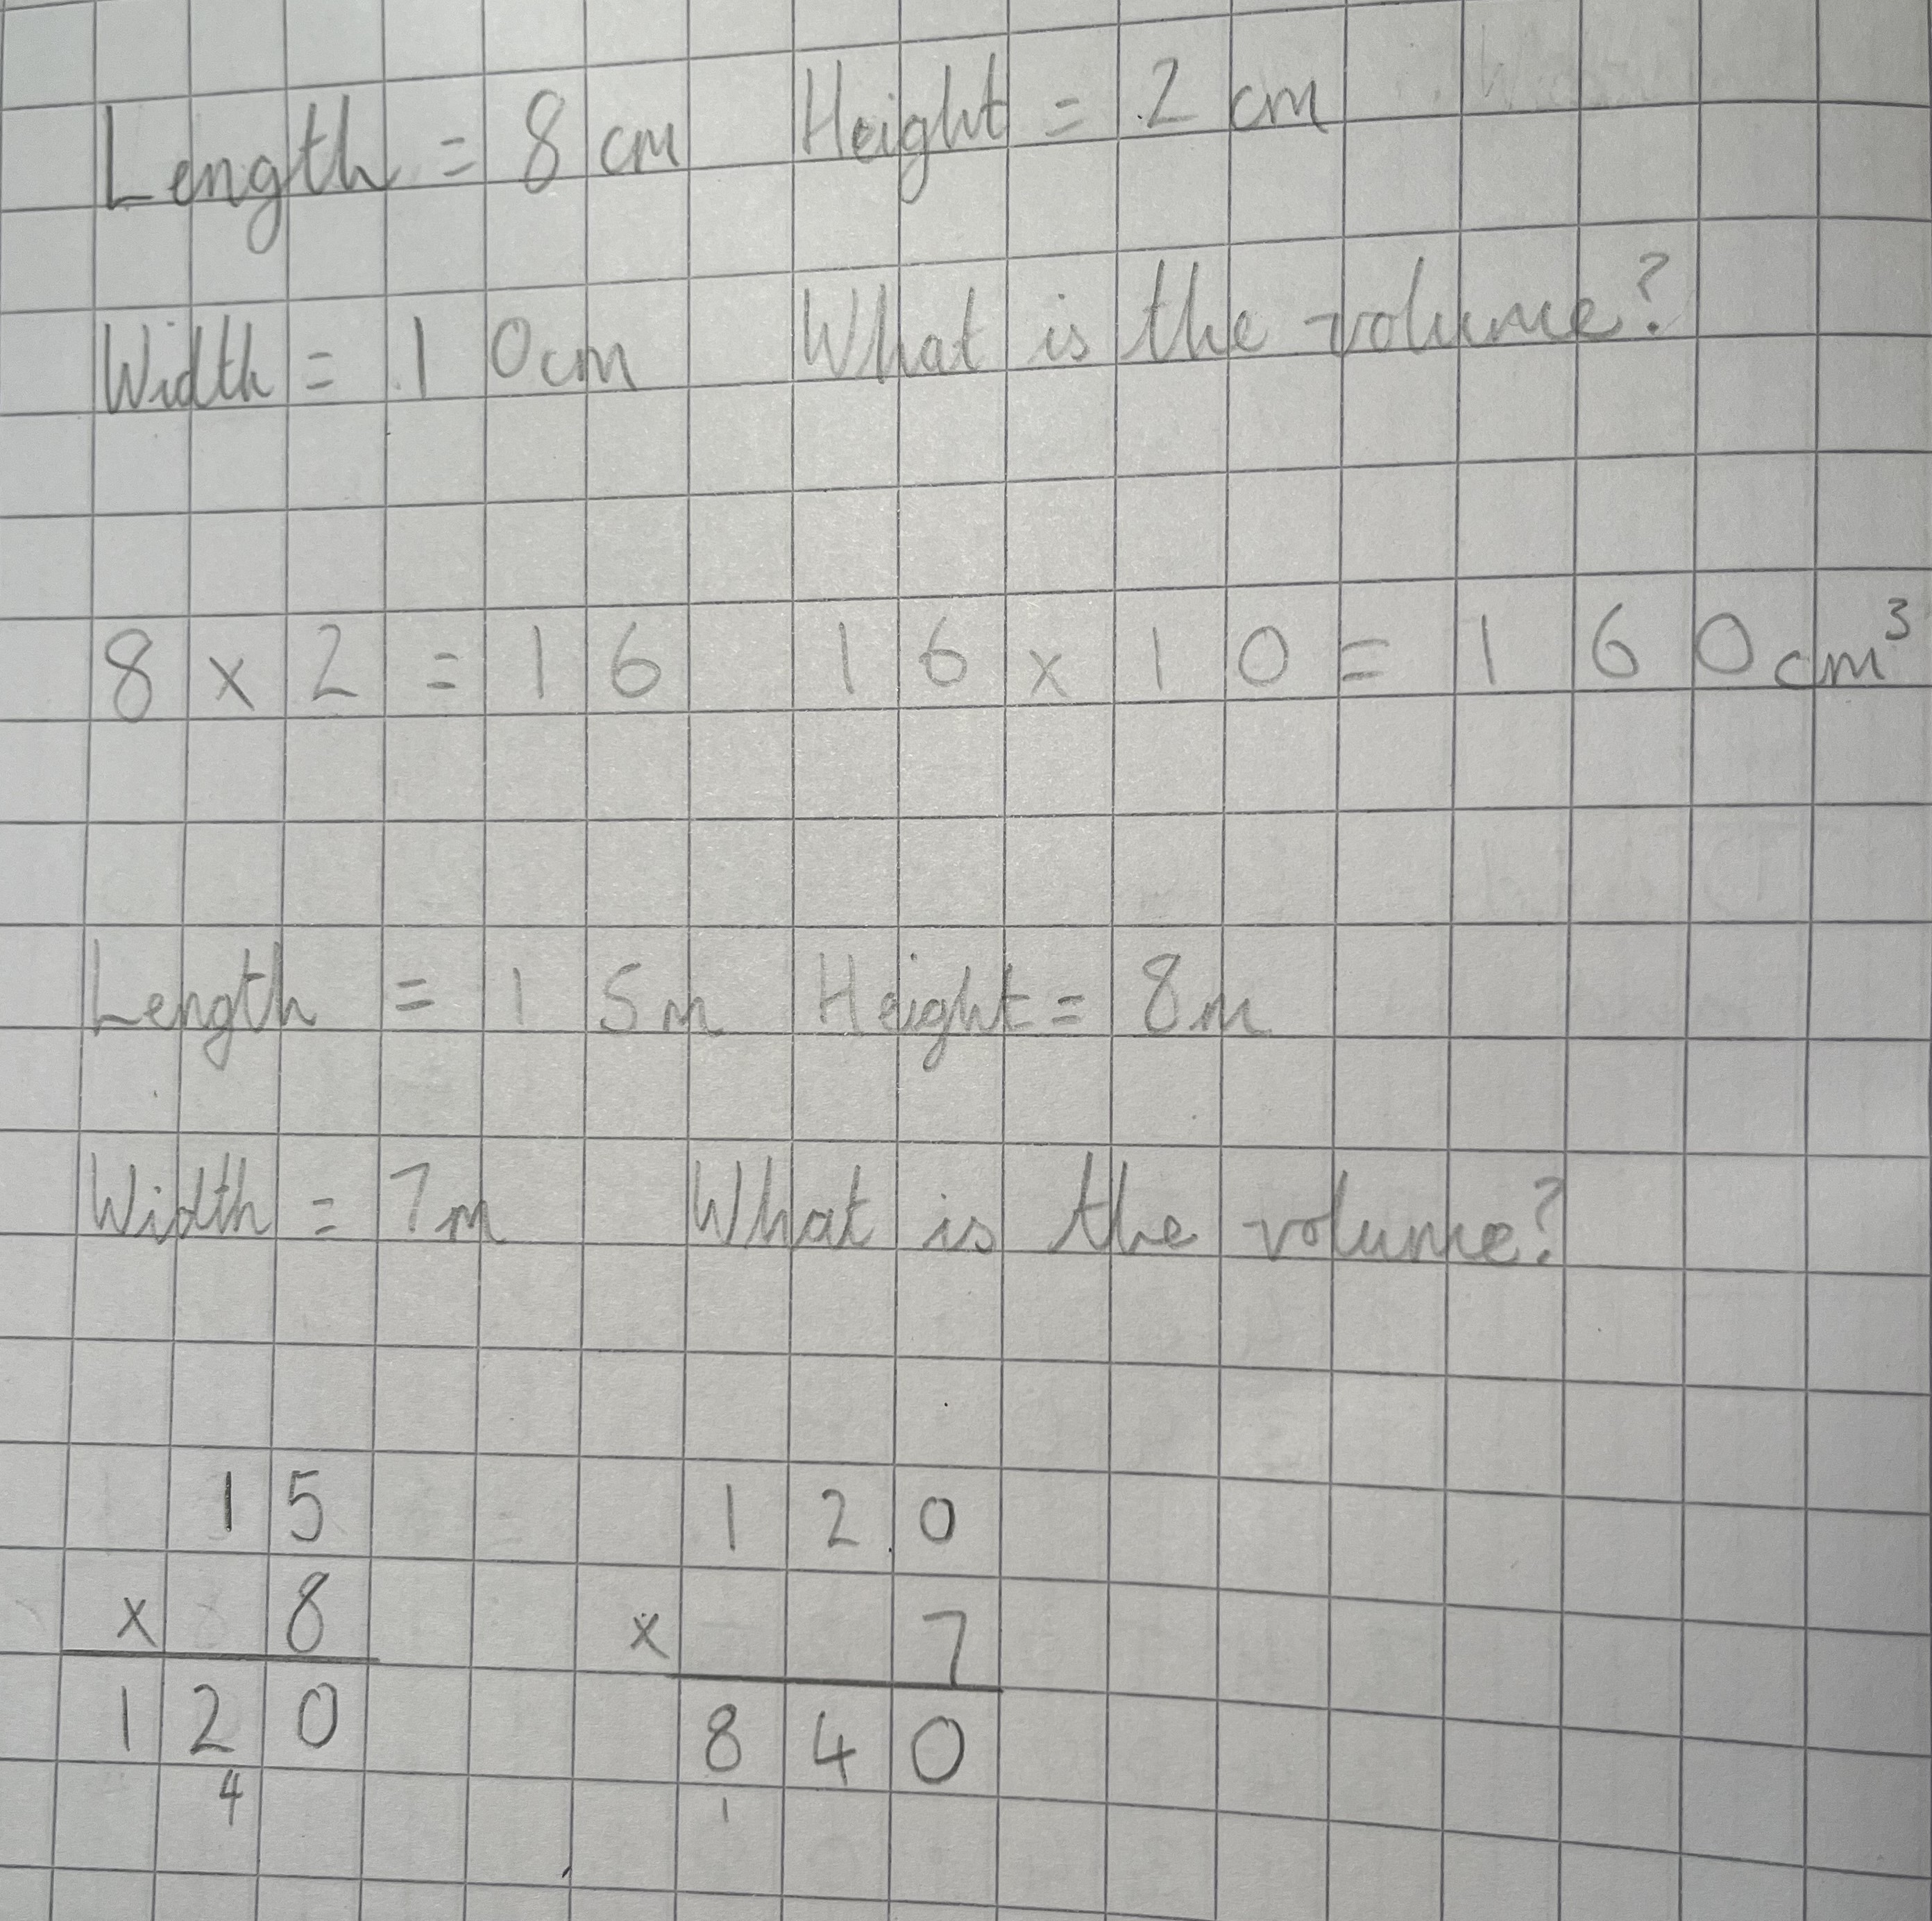 Length = 8 cm Height = 2 cm
Width = 10cm What is the volume?
8 x 2 = 16 16 x 10 = 160cm³
Length = 15m Height = 8m
Width = 7m What is the volume?
15 120
x 8 x 7
120 840
4 1